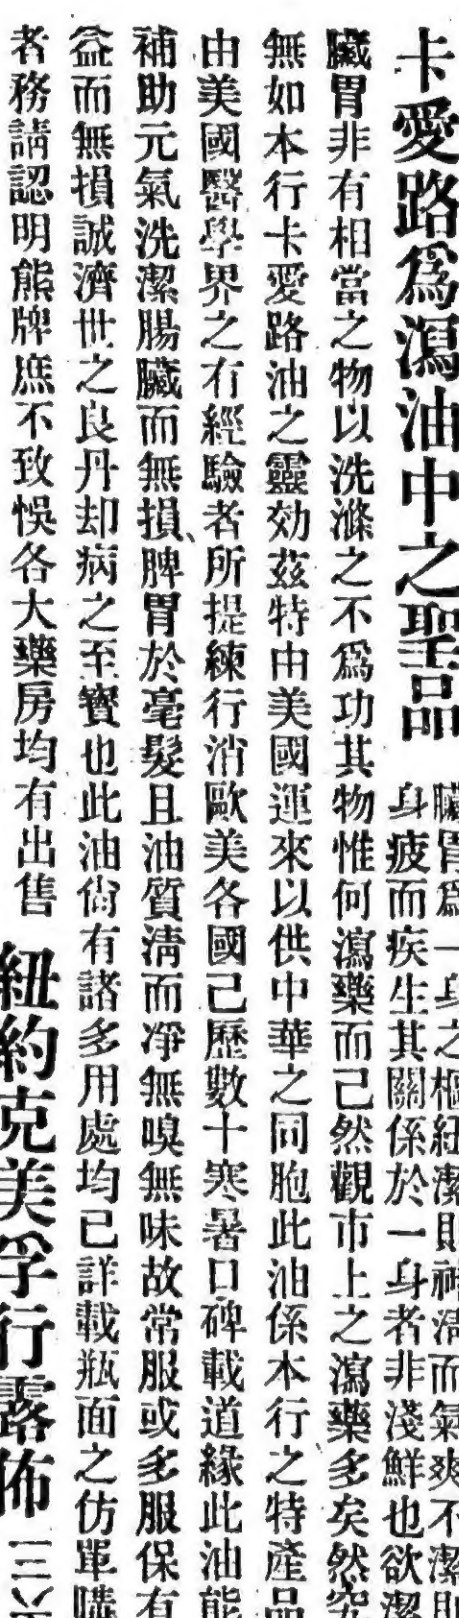 卡愛路爲瀉油中之聖品
臟胃爲一身之樞紐潔則神淸而氣爽不潔則
身疲而疾生其關係於一身者非淺鮮也欲潔
臟胃非有相當之物以洗滌之不爲功其物惟何瀉藥而已然觀市上之瀉藥多矣然究
無如本行卡愛路油之靈効茲特由美國運來以供中華之同胞此油係本行之特產品
由美國醫學界之有經驗者所提練行消歐美各國已歷數十寒暑口碑載道緣此油能
補助元氣洗潔腸臟而無損、脾胃於毫髮且油質淸而凈無嗅無味故常服或多服保有
益而無損誠濟世之良丹却病之至寶也此油尙有諸多用處均已詳載瓶面之仿單購
者務請認明熊牌庶不致悞各大藥房均有出售
紐約克美孚行露佈
三